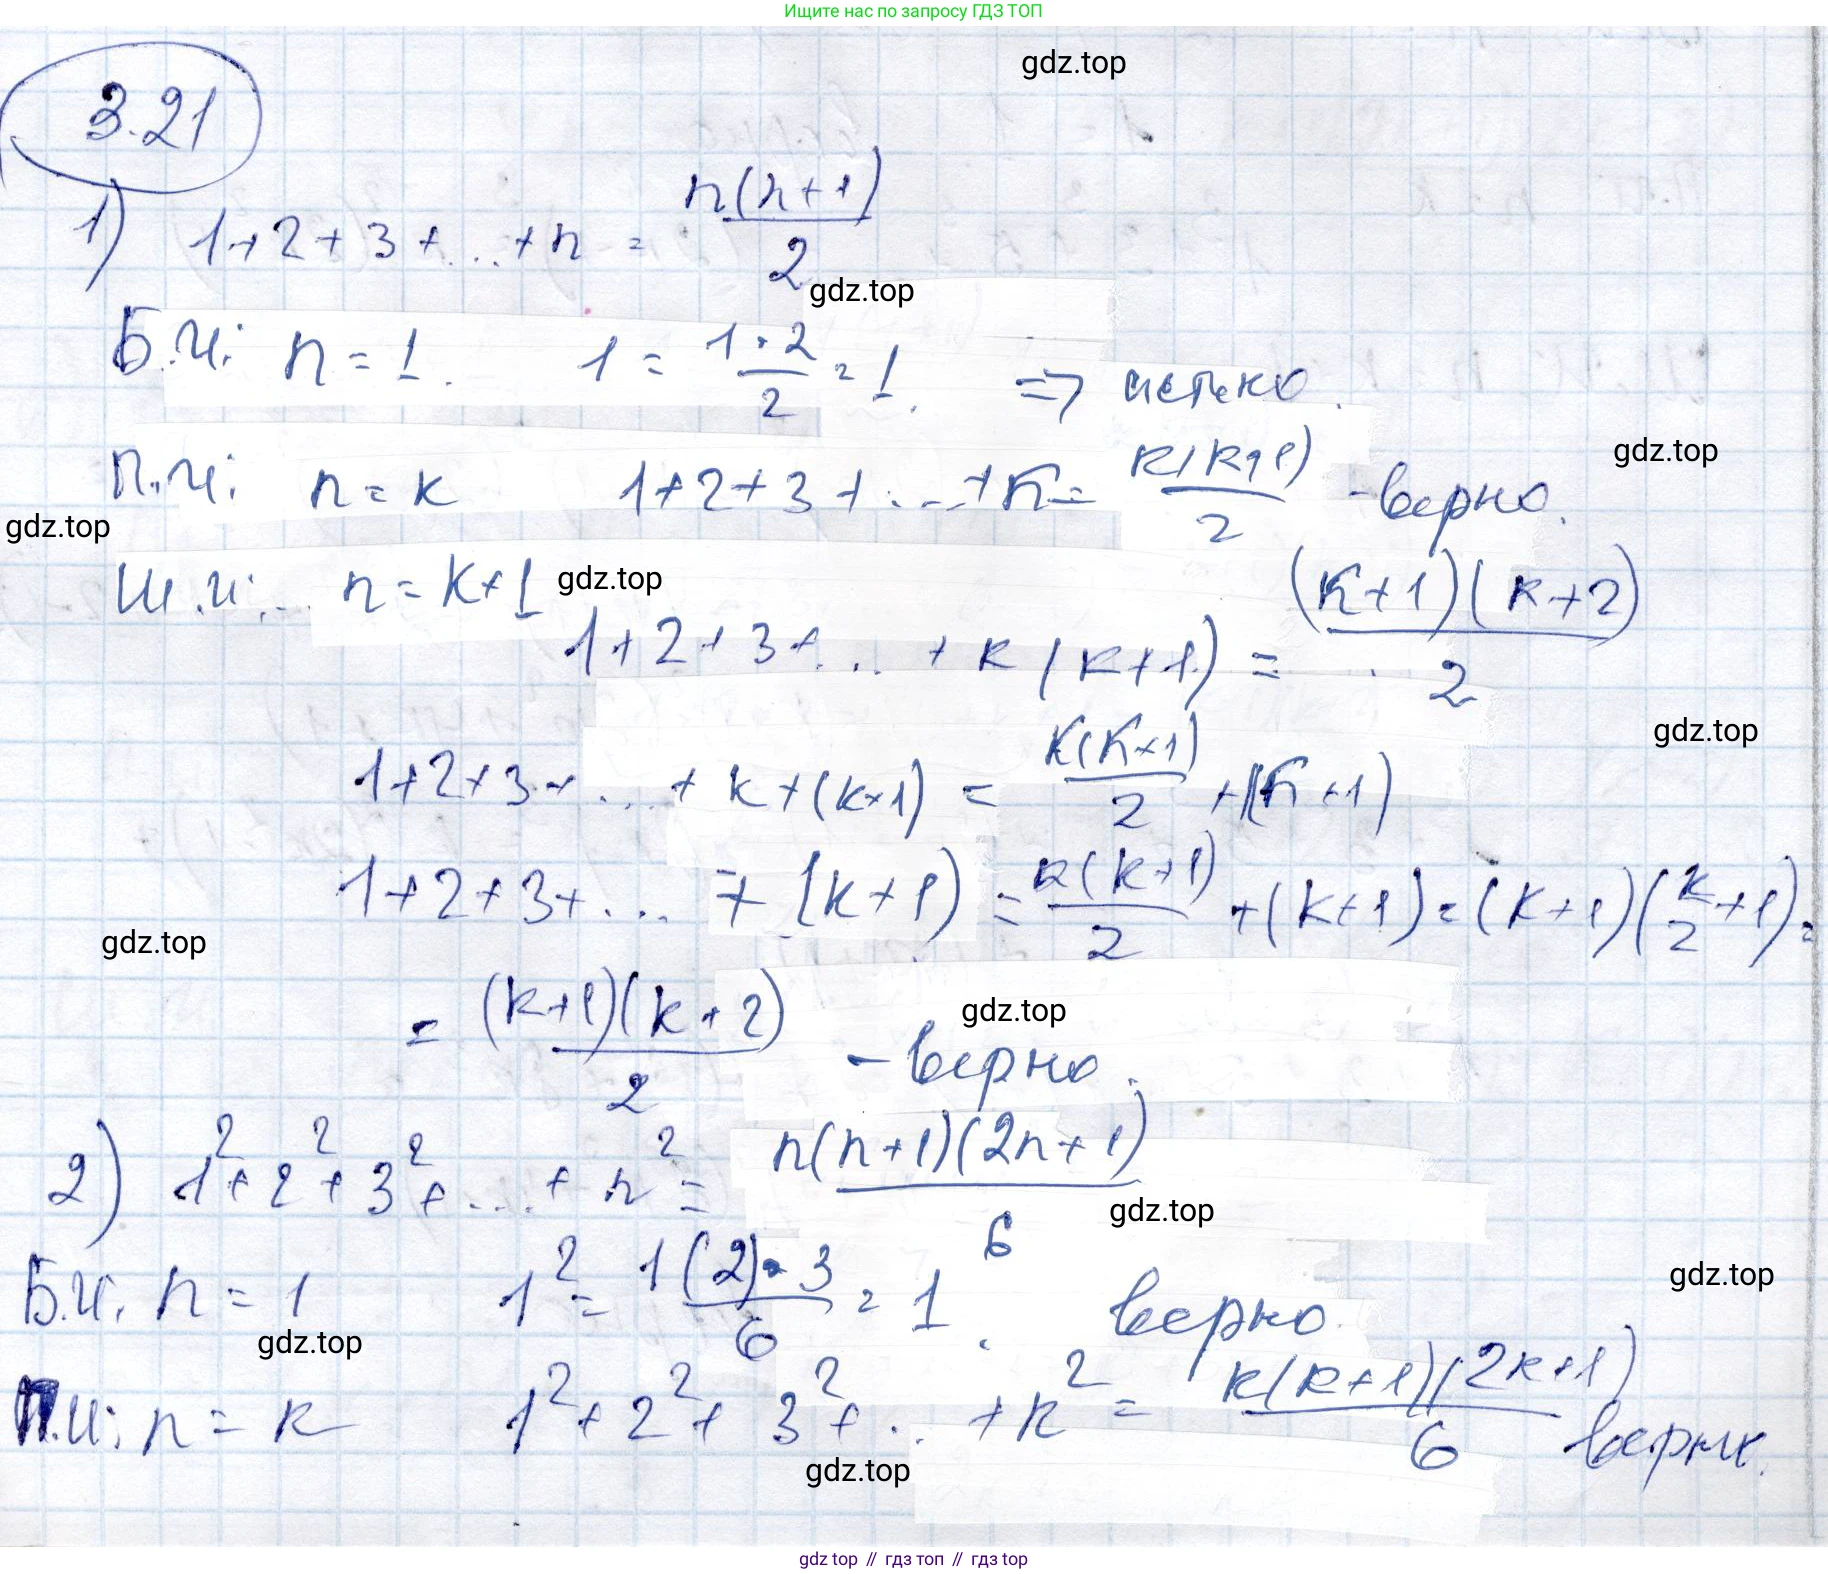 Ищите нас по запросу ГДЗ ТОП
gdz.top
3.21
1) 1+2+3+...+n = n(n+1)/2
gdz.top
Б.И: n=1. 1 = 1·2/2 = 1. => истино.
gdz.top
П.И: n=k 1+2+3+...+k= k(k+1)/2 -верно.
gdz.top
Ш.И: n=k+1 gdz.top
1+2+3+...+k(k+1) = (k+1)(k+2)/2
gdz.top
1+2+3+...+k+(k+1) = k(k+1)/2 +(k+1)
1+2+3+... + (k+1) = k(k+1)/2 +(k+1)=(k+1)(k/2+1)=
gdz.top
= (k+1)(k+2)/2 -верно.
gdz.top
2) 1²+2²+3²+...+n² = n(n+1)(2n+1)/6
gdz.top
Б.И. n=1 1²= 1(2)·3/6 = 1. верно.
gdz.top
gdz.top
П.И: n=k 1²+2²+3²+...+k² = k(k+1)(2k+1)/6
gdz.top
gdz top // гдз топ // гдз top